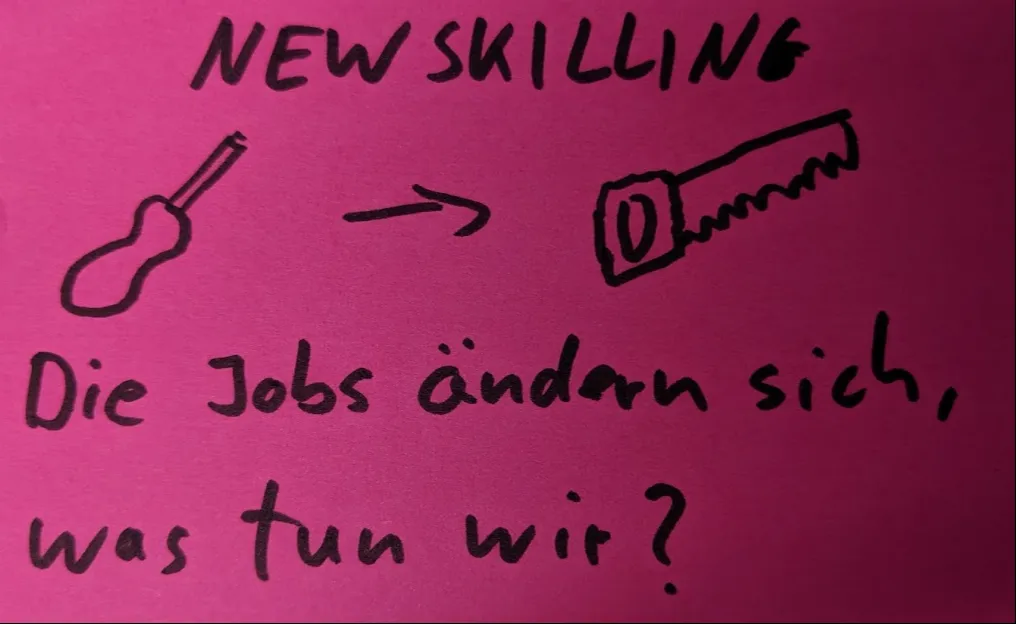 NEWSKILLING
Die Jobs ändern sich,
was tun wir?